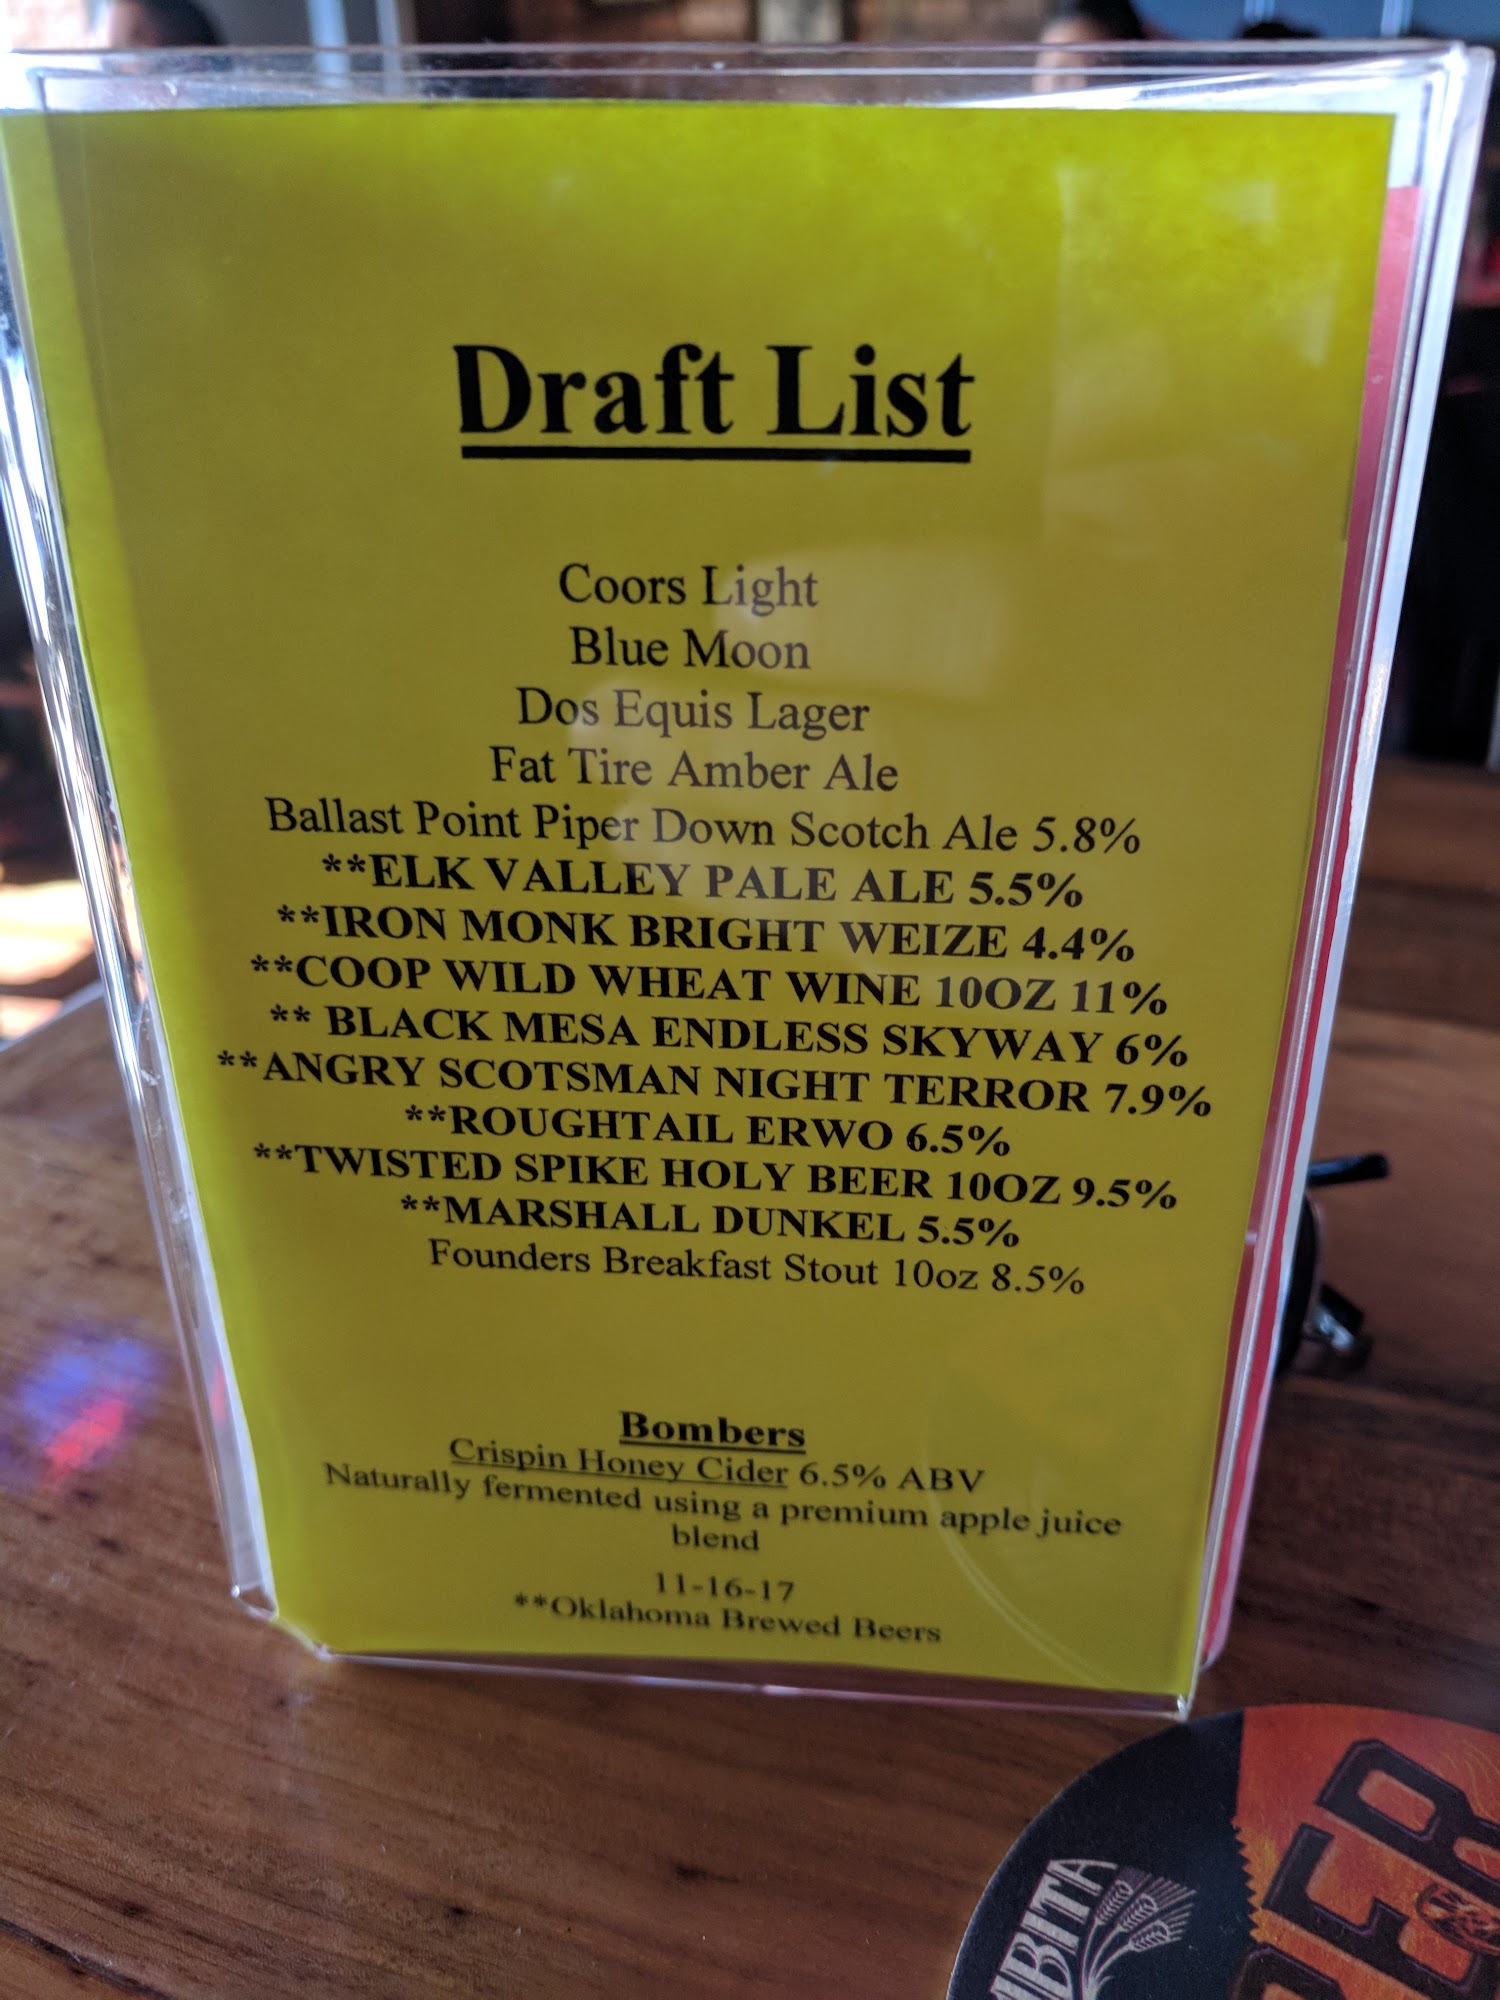 Draft List
Coors Light
Blue Moon
Dos Equis Lager
Fat Tire Amber Ale
Ballast Point Piper Down Scotch Ale 5.8%
**ELK VALLEY PALE ALE 5.5%
**IRON MONK BRIGHT WEIZE 4.4%
**COOP WILD WHEAT WINE 10OZ 11%
** BLACK MESA ENDLESS SKYWAY 6%
**ANGRY SCOTSMAN NIGHT TERROR 7.9%
**ROUGHTAIL ERWO 6.5%
**TWISTED SPIKE HOLY BEER 10OZ 9.5%
**MARSHALL DUNKEL 5.5%
Founders Breakfast Stout 10oz 8.5%
Bombers
Crispin Honey Cider 6.5% ABV
Naturally fermented using a premium apple juice
blend
11-16-17
**Oklahoma Brewed Beers